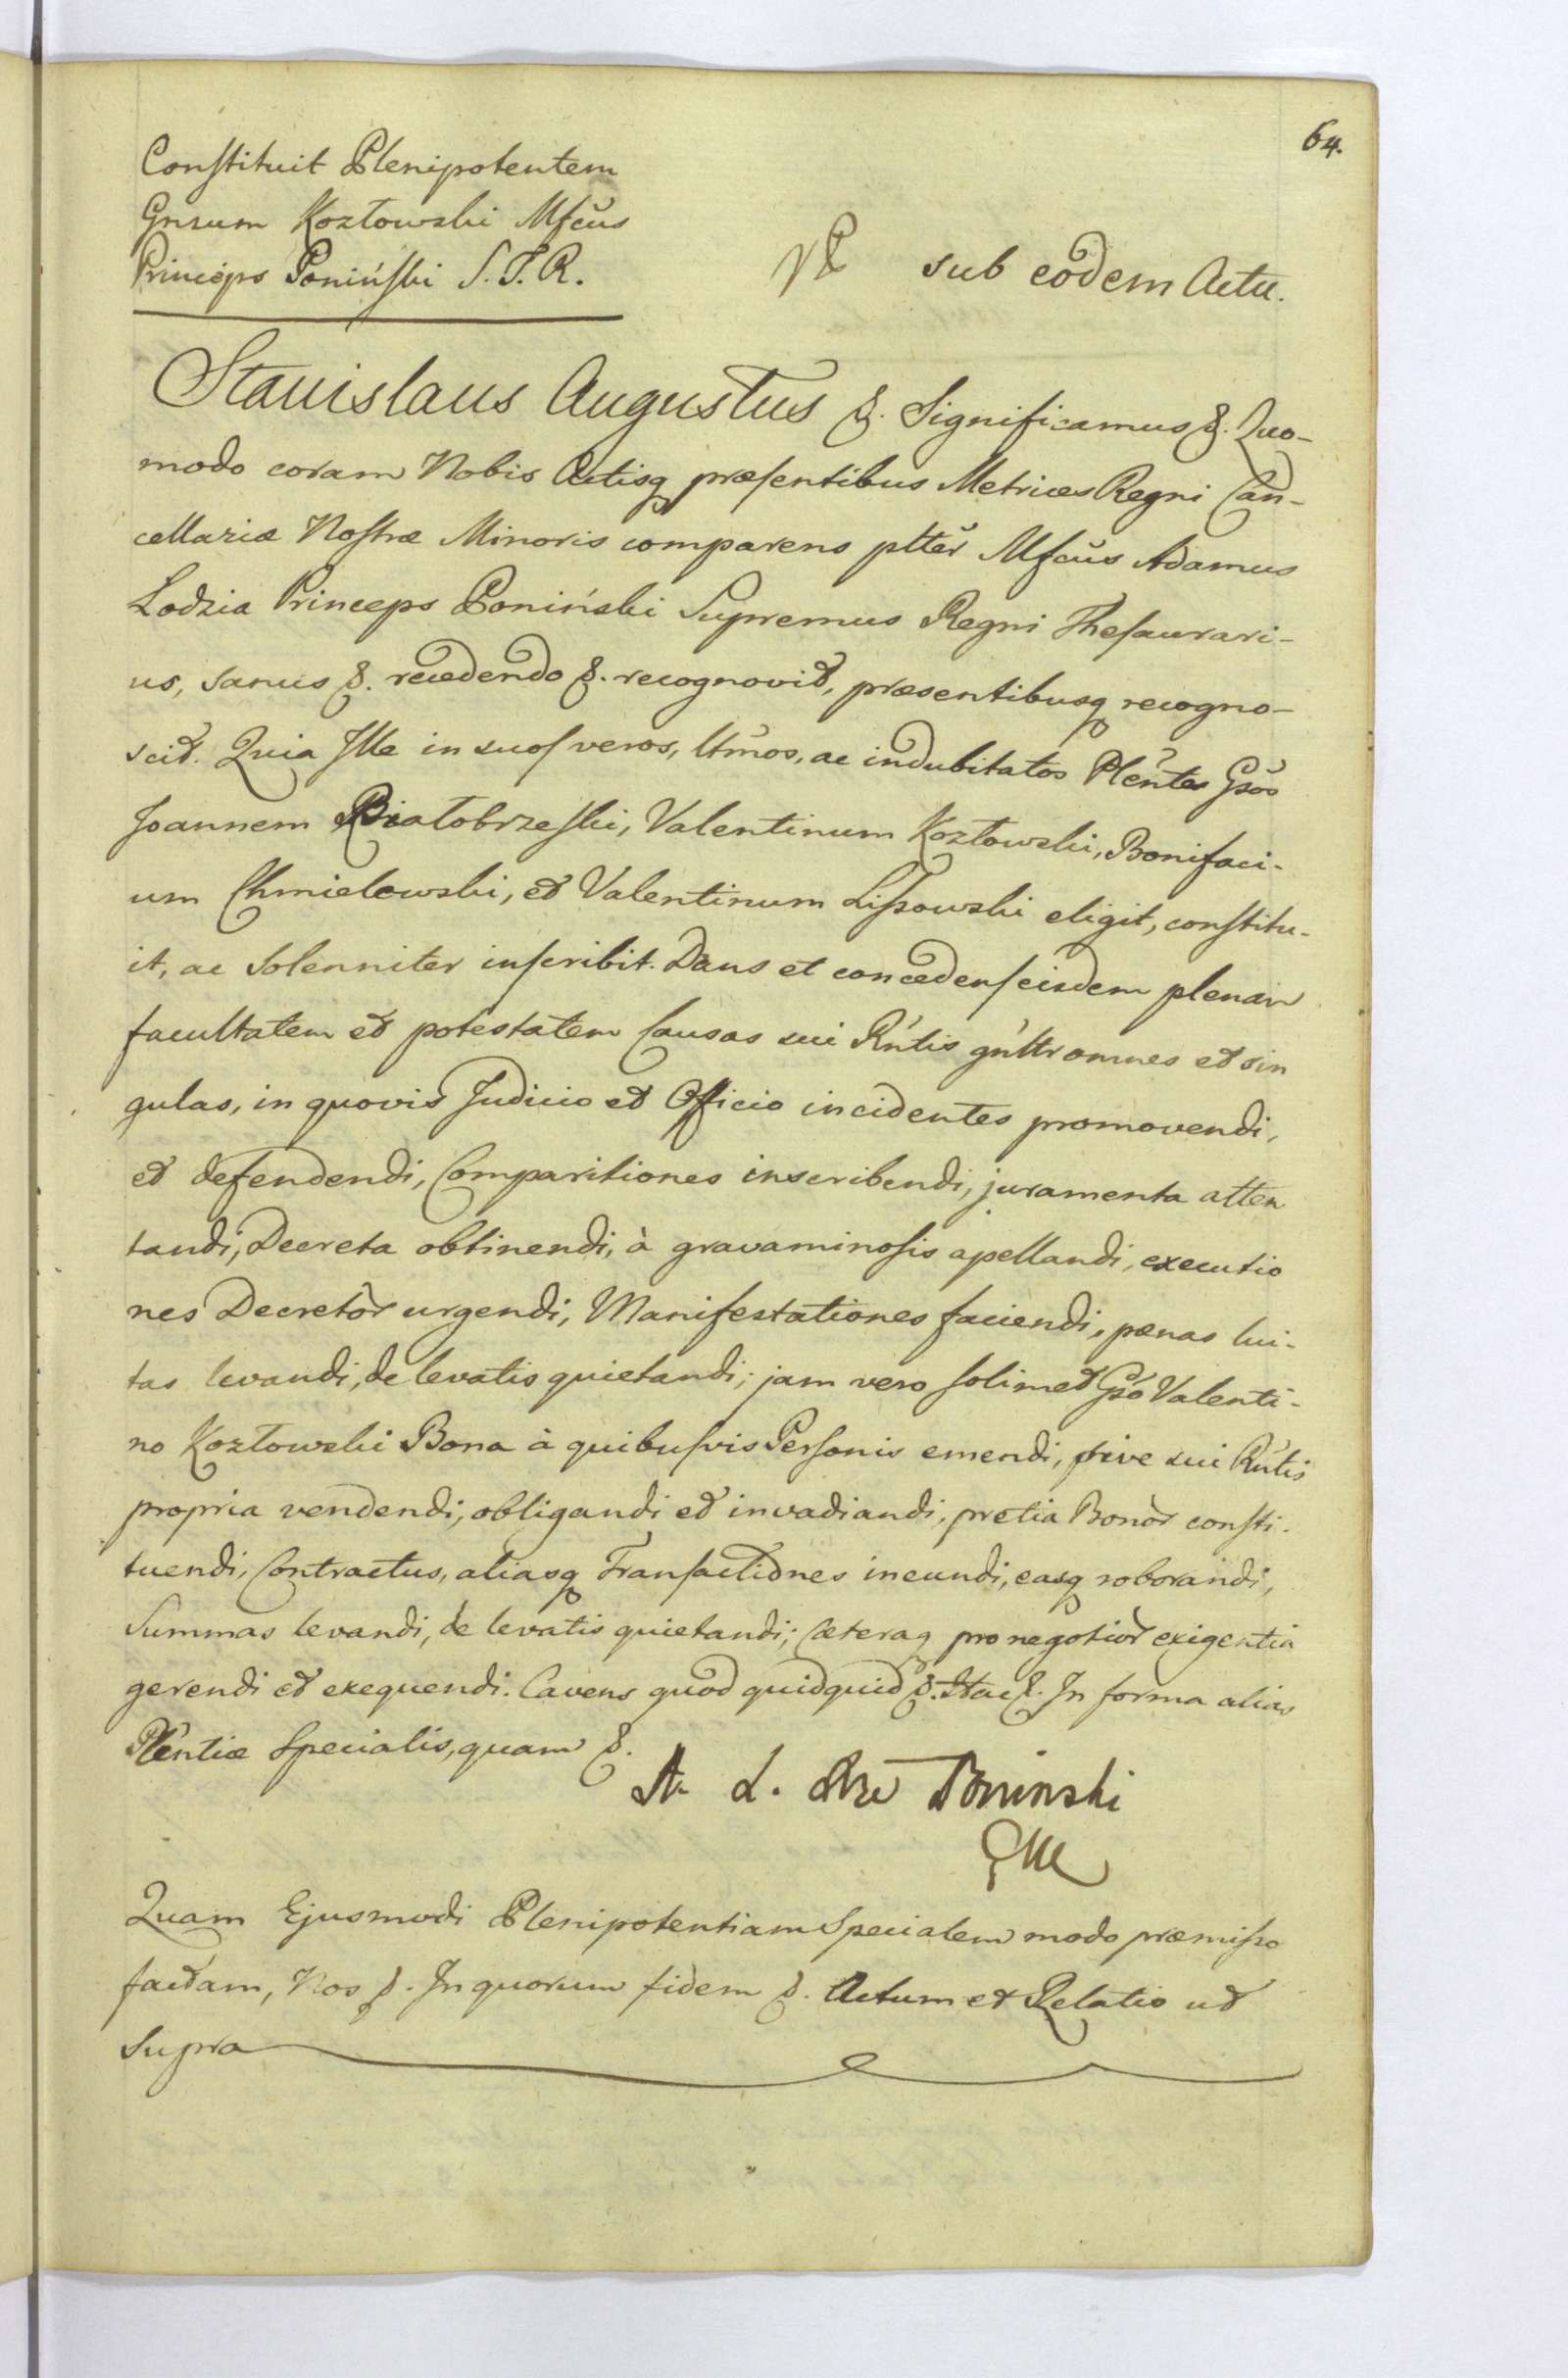 64.
Constituit Plenipotentem
Gnrum Kozłowski Mfcus
Princeps Poniński S. T. R.
sub eodem Actu.
Stanislaus Augustus &. Significamus &. Quo-
modo coram Nobis Actisq præsentibus Metrices Regni Can-
cellariæ Nostræ Minoris comparens pltter Mfcus Adamus
Lodzia Princeps Poniński Supremus Regni Thesaurari-
us, sanus &. recedendo &. recognovit, præsentibusq recogno-
scit. Quia Ille in suos veros, ltmos, ac indubitatos Plentes Gsos
Joannem Białobrzeski, Valentinum Kozłowski, Bonifaci-
um Chmielewski, et Valentinum Lissowski eligit, constitu-
it, ac Solenniter inscribit. Dans et concedens eisdem plenam
facultatem et potestatem Causas sui Rntis gnlltr omnes et sin
gulas, in quovis Judicio et Officio incidentes promovendi,
et defendendi, Comparitiones inscribendi, juramenta atten
tandi, Decreta obtinendi, à gravaminosis apellandi, executio
nes Decretor urgendi, Manifestationes faciendi, pænas lui-
tas levandi, de levatis quietandi; jam vero solimet Gso Valenti-
no Kozłowski Bona à quibusvis Personis emendi, sive sui Rntis
propria vendendi, obligandi et invadiandi, pretia Bonor consti-
tuendi, Contractus, aliasq Transactiones ineundi, easq roborandi,
Summas levandi, de levatis quietandi; Cæteraq pro negotior exigentia
gerendi et exequendi. Cavens quod quidquid &. Itaq &. In forma alias
Plentiæ Specialis, quam &.
A. L. Poninski
Quam Ejusmodi Plenipotentiam Specialem modo præmisso
factam, Nos &. In quorum fidem &. Actum et Relatio ut
Supra